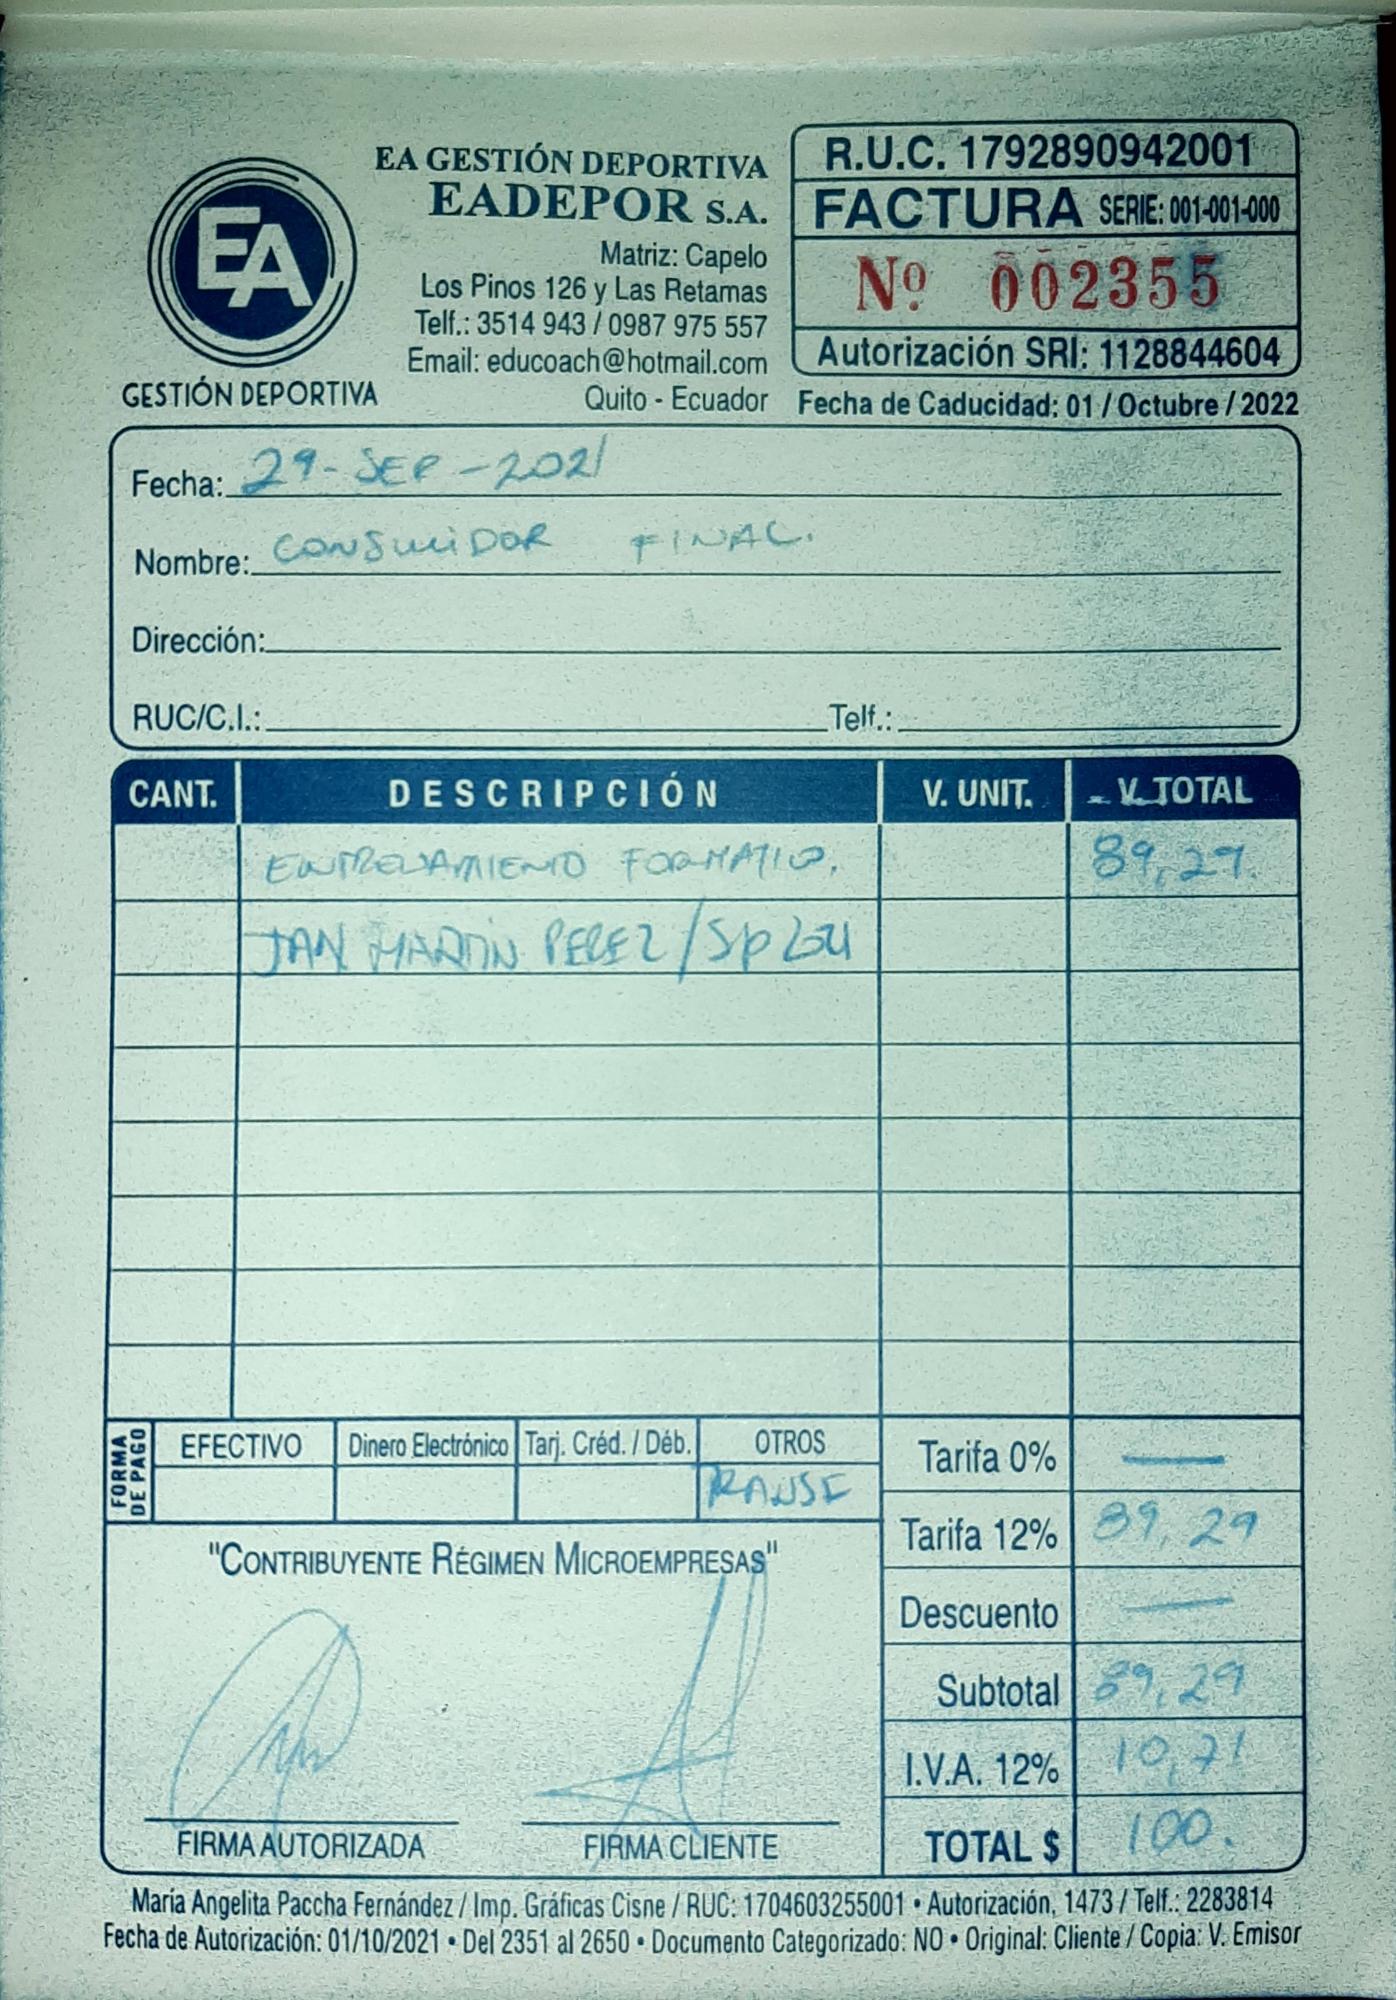 EA
GESTIÓN DEPORTIVA
EA GESTIÓN DEPORTIVA
EADEPOR S.A.
Matriz: Capelo
Los Pinos 126 y Las Retamas
Telf.: 3514 943 / 0987 975 557
Email: educoach@hotmail.com
Quito - Ecuador
R.U.C. 1792890942001
FACTURA SERIE: 001-001-000
Nº 002355
Autorización SRI: 1128844604
Fecha de Caducidad: 01 / Octubre / 2022
Fecha: 29-SEP-2021
Nombre: CONSUMIDOR FINAL.
Dirección:
RUC/C.I.: Telf.:
CANT. DESCRIPCIÓN V. UNIT. V. TOTAL
ENTRENAMIENTO FORMATIVO. 89,29.
JAN MARTIN PEREZ/SP
FORMA DE PAGO
EFECTIVO Dinero Electrónico Tarj. Créd. / Déb. OTROS
TRANSF
Tarifa 0% —
Tarifa 12% 89,29
Descuento —
Subtotal 89,29
I.V.A. 12% 10,71
TOTAL $ 100.
"CONTRIBUYENTE RÉGIMEN MICROEMPRESAS"
FIRMA AUTORIZADA FIRMA CLIENTE
María Angelita Paccha Fernández / Imp. Gráficas Cisne / RUC: 1704603255001 • Autorización, 1473 / Telf.: 2283814
Fecha de Autorización: 01/10/2021 • Del 2351 al 2650 • Documento Categorizado: NO • Original: Cliente / Copia: V. Emisor